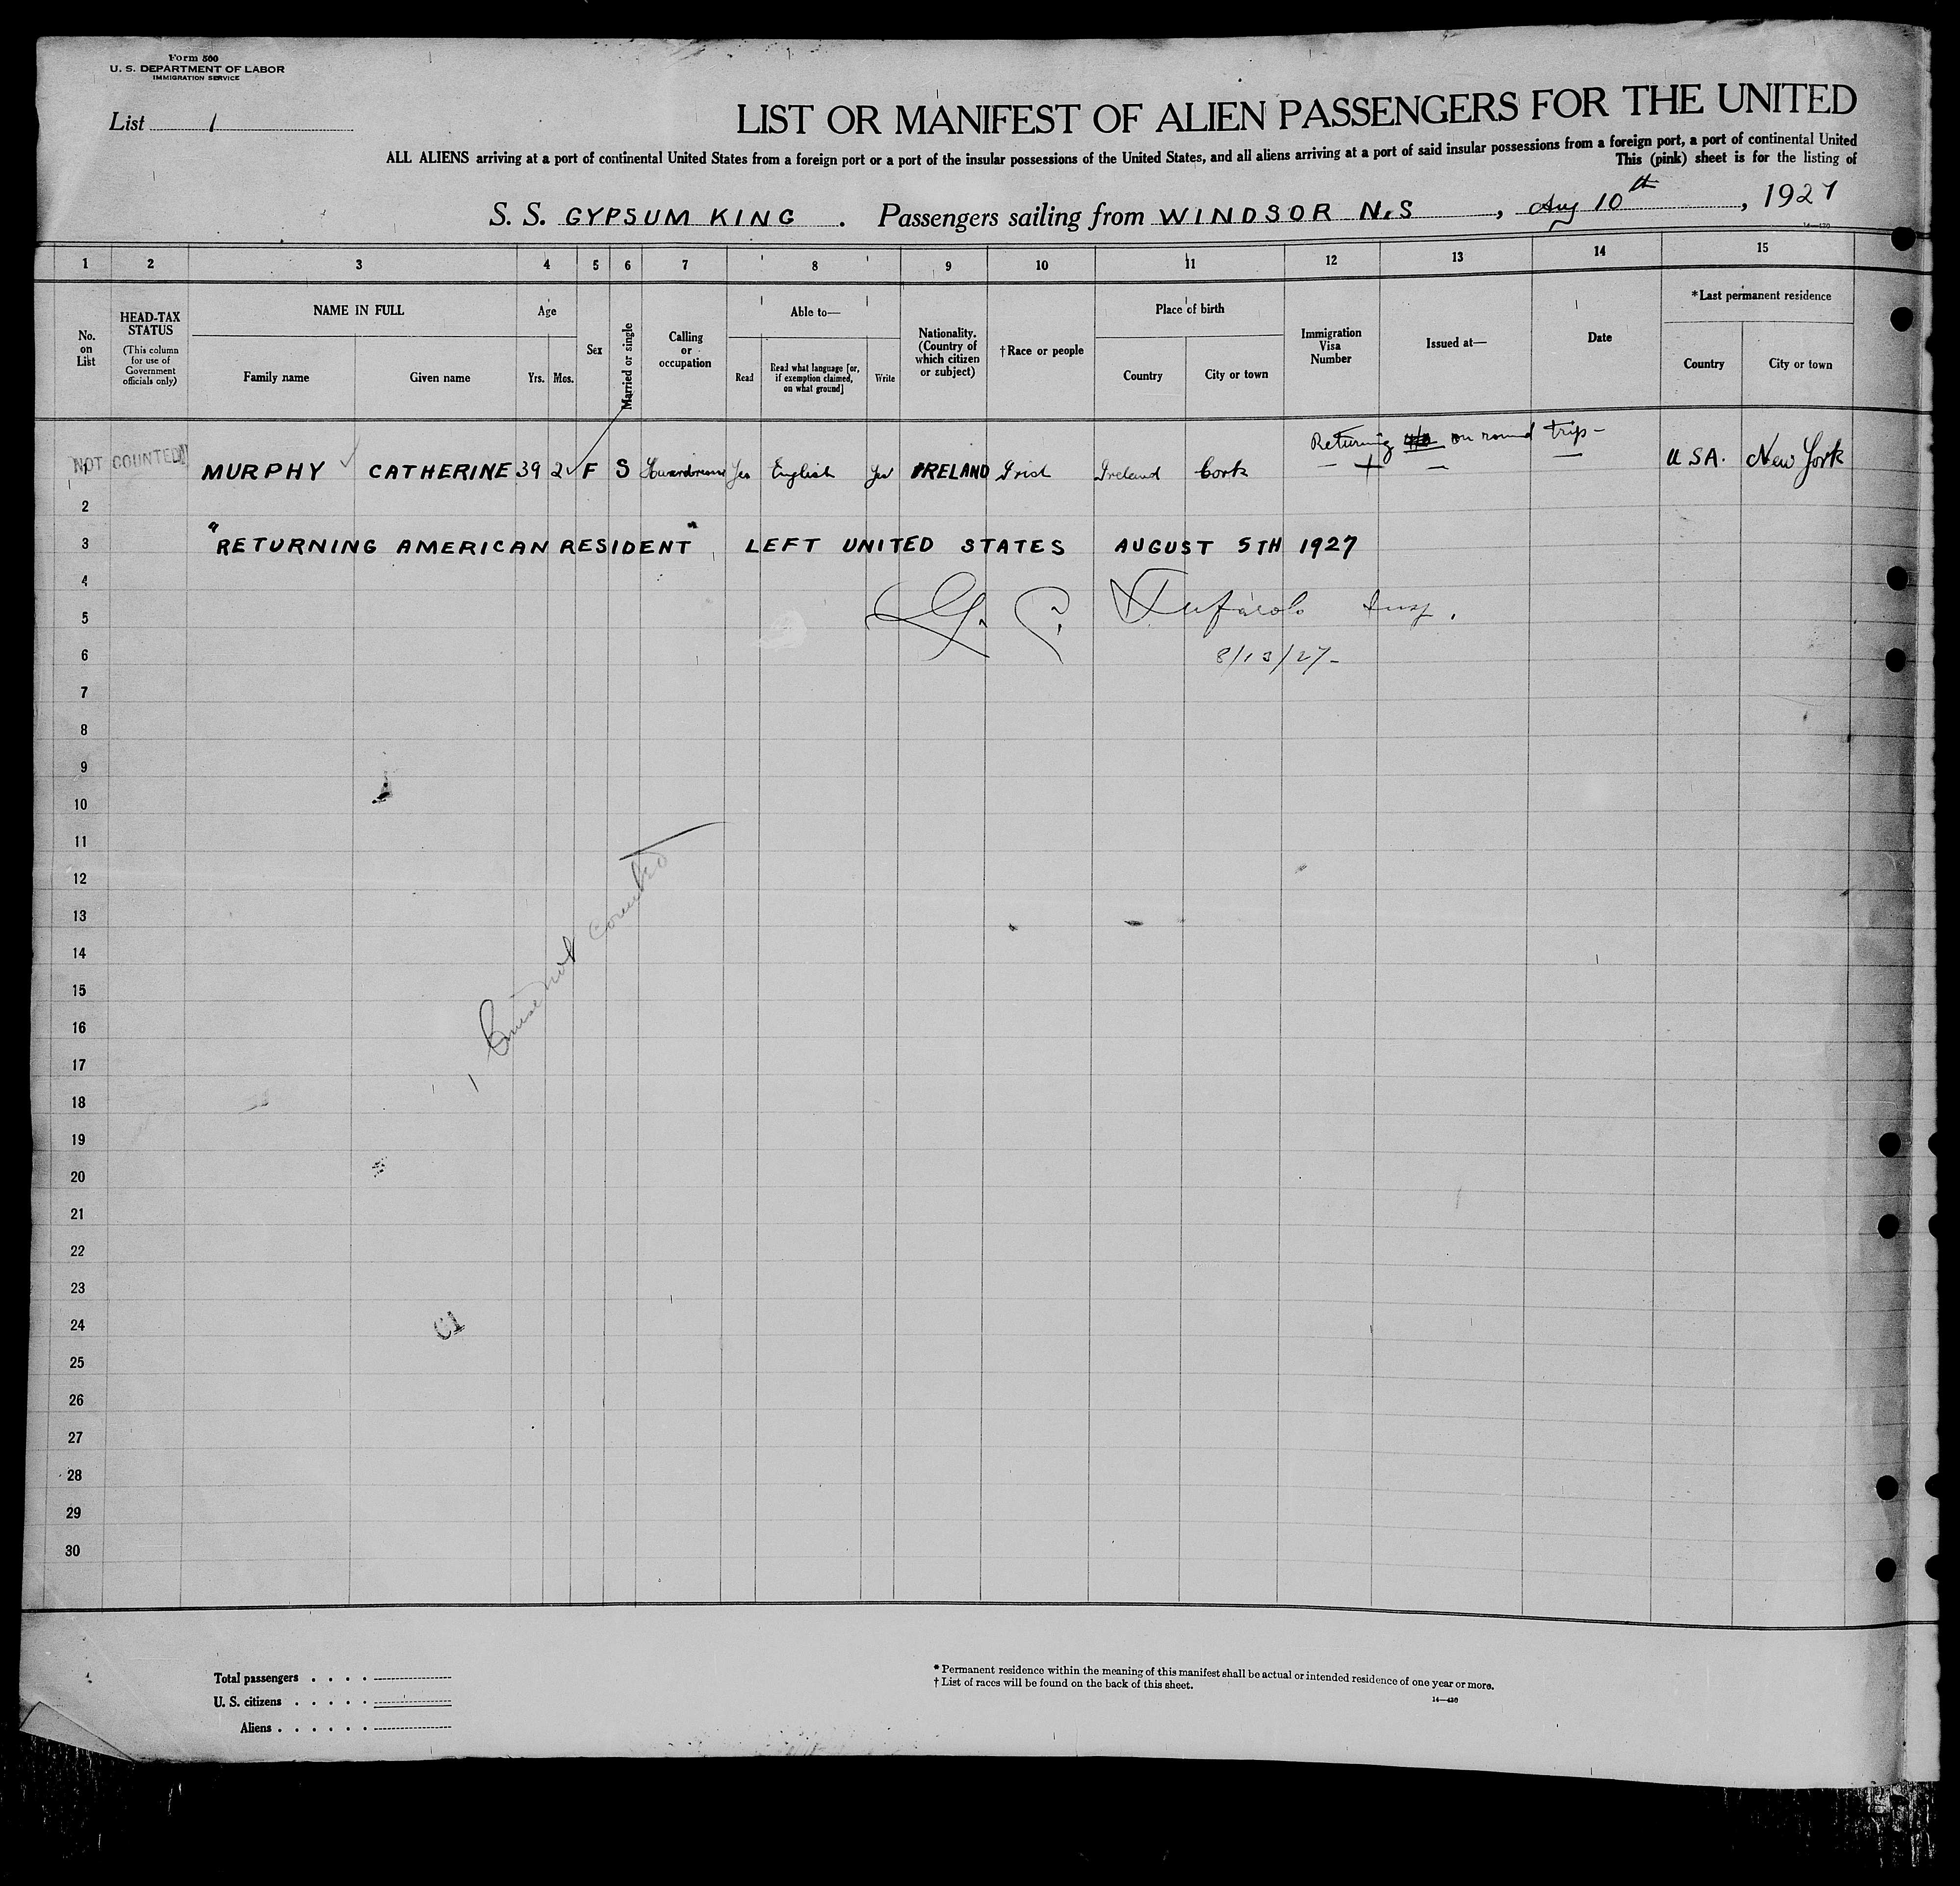 Form 500
U. S. DEPARTMENT OF LABOR
IMMIGRATION SERVICE
List 1
LIST OR MANIFEST OF ALIEN PASSENGERS FOR THE UNITED
ALL ALIENS arriving at a port of continental United States from a foreign port or a port of the insular possessions of the United States, and all aliens arriving at a port of said insular possessions from a foreign port, a port of continental United
This (pink) sheet is for the listing of
S. S. GYPSUM KING . Passengers sailing from WINDSOR N.S , Aug 10th , 1927
1 2 3 4 5 6 7 8 9 10 11 12 13 14 15
No. on List
HEAD-TAX STATUS
(This column for use of Government officials only)
NAME IN FULL
Family name
Given name
Age
Yrs.
Mos.
Sex
Married or single
Calling or occupation
Able to—
Read
Read what language [or, if exemption claimed, on what ground]
Write
Nationality. (Country of which citizen or subject)
†Race or people
Place of birth
Country
City or town
Immigration Visa Number
Issued at—
Date
*Last permanent residence
Country
City or town
Returning on round trip –
NOT COUNTED
1 MURPHY CATHERINE 39 2 F S Yes English Yes IRELAND Irish Ireland Cork USA. New York
2
3 "RETURNING AMERICAN RESIDENT" LEFT UNITED STATES AUGUST 5TH 1927
4
5 Insp.
6 8/13/27–
7
8
9
10
11
12
13
14
15
16
17
1 not counted
18
19
20
21
22
23
24
25
26
27
28
29
30
Total passengers . . . .
U. S. citizens . . . . .
Aliens . . . . . .
* Permanent residence within the meaning of this manifest shall be actual or intended residence of one year or more.
† List of races will be found on the back of this sheet.
14—430